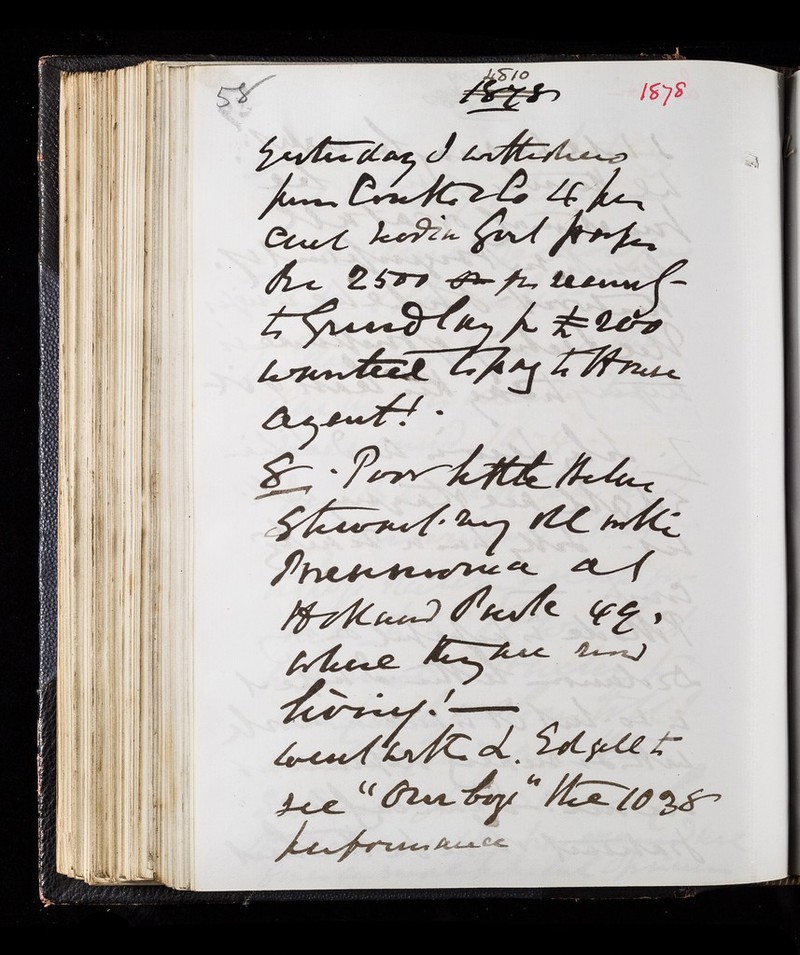 58
1810
1878
1878
Yesterday I withdrew
from Coutts & Co 4 per
cent India Govt paper
Rs 2500 for
to Grindlay for £200
wanted to pay to House
agent!
8. Poor little Helen
Stewart very ill with
Pneumonia at
Holland Park 49,
where they are now
living! —
went with L. Edgell to
see "Our boys" the 1038
performance